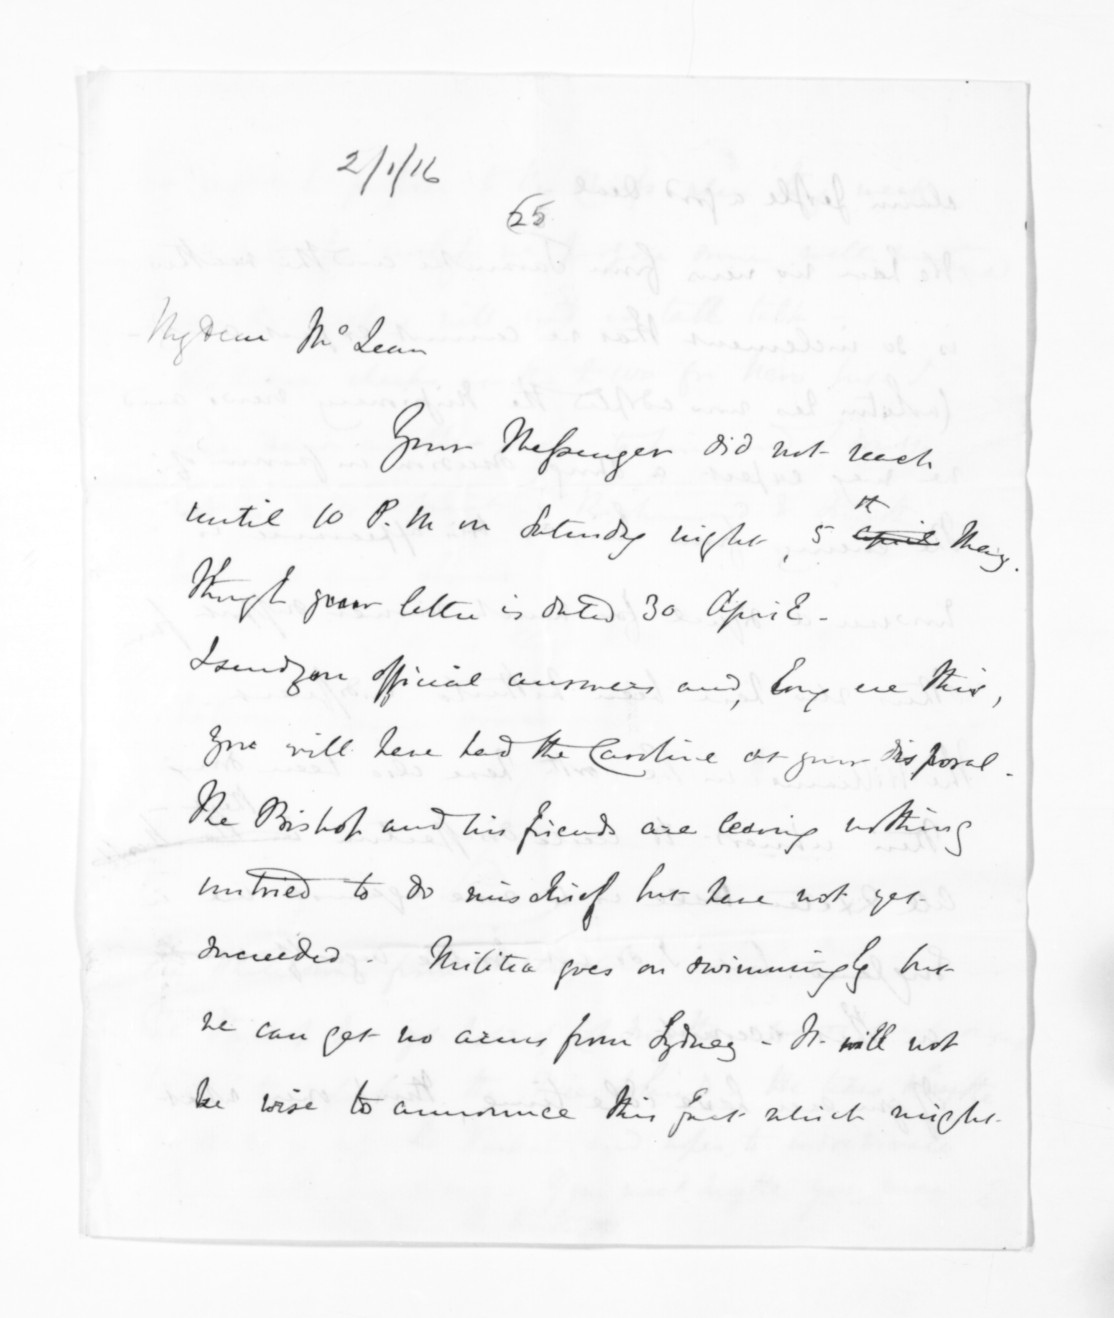 2/1/16
25
My dear McLean
Your Messenger did not reach
until 10 P.M on Saturday night, 5th April May.
Though your letter is dated 30 April -
I send you official answers and, long ere this,
you will have had the Caroline at your disposal -
The Bishop and his friends are leaving nothing
untried to do mischief but have not yet
succeeded. Militia goes on swimmingly but
we can get no arms from Sydney - It will not
be wise to announce this fact which might